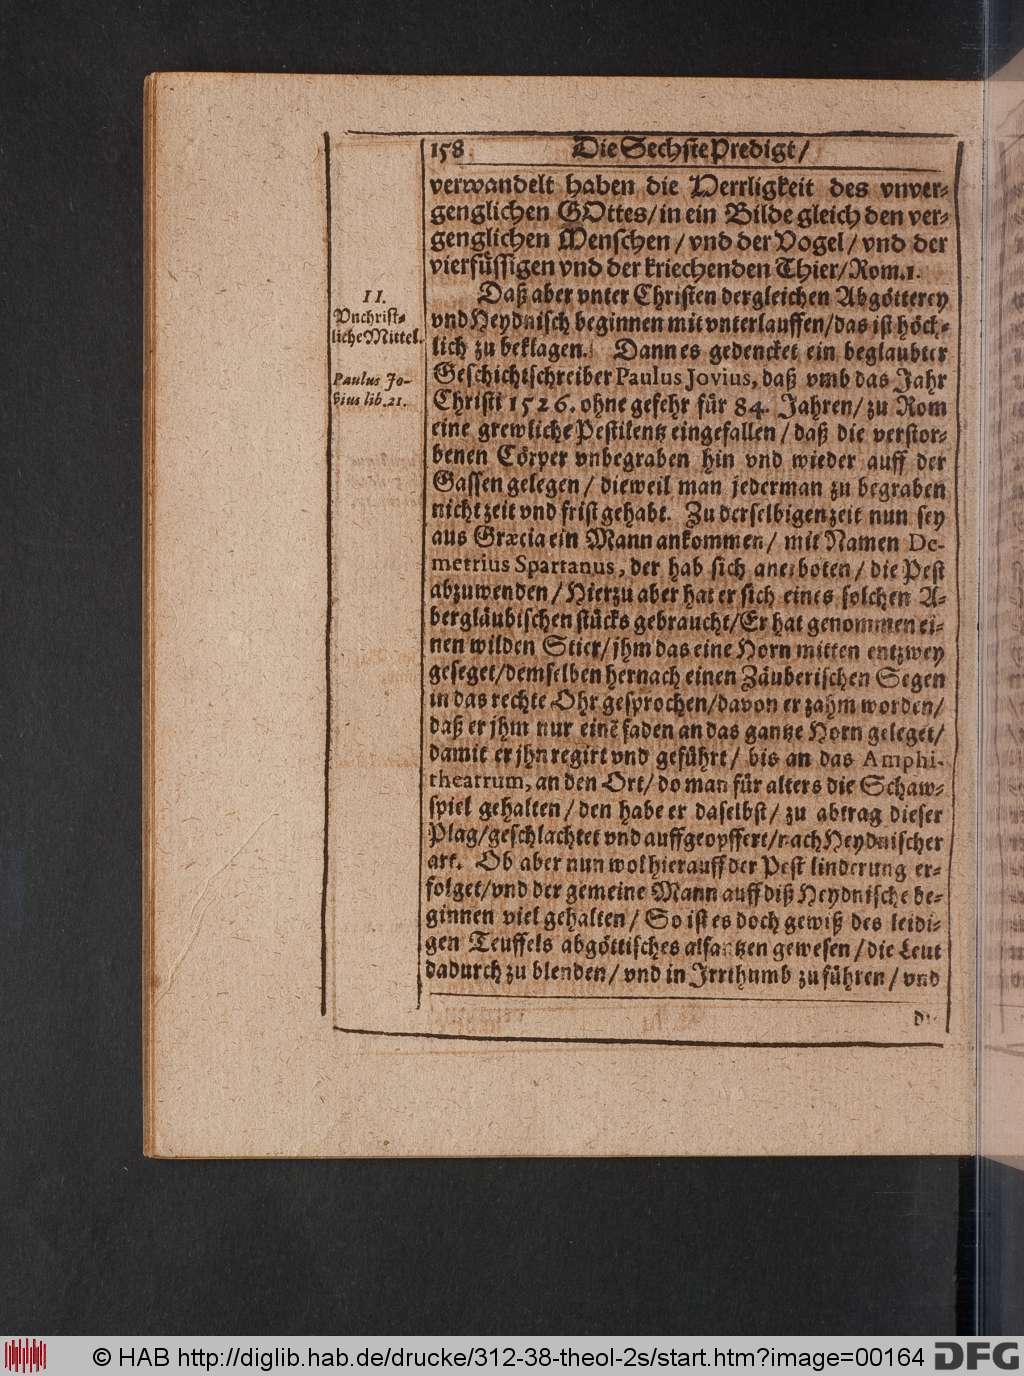 158 Die Sechste Predigt/
verwandelt haben die Herrligkeit des vnver-
genglichen GOttes/ in ein Bilde gleich den ver-
genglichen Menschen / vnd der Vogel / vnd der
vierfüssigen vnd der kriechenden Thier/ Rom.1.
II.
Vnchrist-
liche Mittel.
Daß aber vnter Christen dergleichen Abgötterey
vnd Heydnisch beginnen mit vnterlauffen/ das ist höch-
lich zu beklagen. Dann es gedencket ein beglaubter
Paulus Jo-
vius lib. 21.
Geschichtschreiber Paulus Jovius, daß vmb das Jahr
Christi 1526. ohne gefehr für 84. Jahren/ zu Rom
eine grewliche Pestilentz eingefallen / daß die verstor-
benen Cörper vnbegraben hin vnd wieder auff der
Gassen gelegen / dieweil man jederman zu begraben
nicht zeit vnd frist gehabt. Zu derselbigen zeit nun sey
aus Græcia ein Mann ankommen/ mit Namen De-
metrius Spartanus, der hab sich anerboten / die Pest
abzuwenden / Hierzu aber hat er sich eines solchen A-
bergläubischen stücks gebraucht/ Er hat genommen ei-
nen wilden Stier/ jhm das eine Horn mitten entzwey
geseget/ demselben hernach einen Zäuberischen Segen
in das rechte Ohr gesprochen/ davon er zahm worden/
daß er jhm nur einẽ faden an das gantze Horn geleget/
damit er jhn regirt vnd geführt/ bis an das Amphi-
theatrum, an den Ort/ do man für alters die Schaw-
spiel gehalten / den habe er daselbst / zu abtrag dieser
Plag/ geschlachtet vnd auffgeopffert/ nach Heydnischer
art. Ob aber nun wol hierauff der Pest linderung er-
folget/ vnd der gemeine Mann auff diß Heydnische be-
ginnen viel gehalten / So ist es doch gewiß des leidi-
gen Teuffels abgöttisches alfantzen gewesen / die Leut
dadurch zu blenden/ vnd in Irrthumb zu führen / vnd
© HAB http://diglib.hab.de/drucke/312-38-theol-2s/start.htm?image=00164 DFG